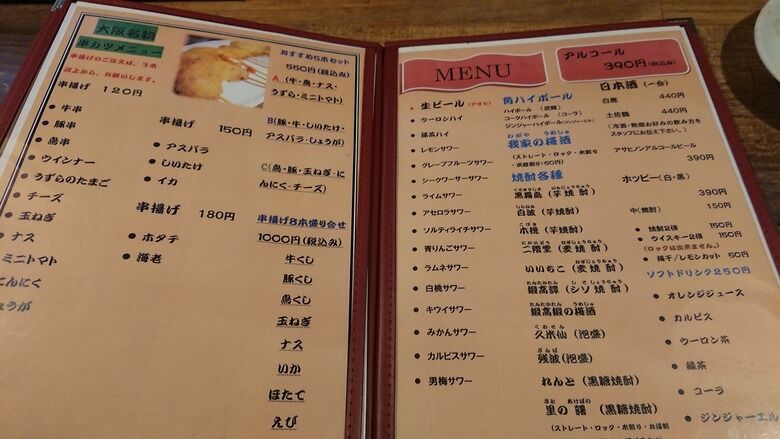 大阪名物
串カツメニュー
串揚げのご注文は、3本
以上から、お願いします。
串揚げ 120円
牛串
豚串
鳥串
ウインナー
うずらのたまご
チーズ
玉ねぎ
ナス
ミニトマト
にんにく
しょうが
串揚げ 150円
アスパラ
しいたけ
イカ
串揚げ 180円
ホタテ
海老
おすすめ5本セット
550円(税込み)
A(牛・鳥・ナス・
うずら・ミニトマト)
B(豚・牛・しいたけ・
アスパラ・しょうが)
C(鳥・豚・玉ねぎ・に
んにく・チーズ)
串揚げ8本盛り合せ
1000円(税込み)
牛くし
豚くし
鳥くし
玉ねぎ
ナス
いか
ほたて
えび
MENU
アルコール
390円(税込み)
生ビール(アサヒ)
ウーロンハイ
緑茶ハイ
レモンサワー
グレープフルーツサワー
シークワーサーサワー
ライムサワー
アセロラサワー
ソルティライチサワー
青りんごサワー
ラムネサワー
白桃サワー
キウイサワー
みかんサワー
カルピスサワー
男梅サワー
角ハイボール
ハイボール (炭酸)
コークハイボール (コーラ)
ジンジャーハイボール(ジンジャーエール)
我家の梅酒
(ストレート・ロック・水割り
・炭酸割り・50円)
焼酎各種
黒霧島 (芋焼酎)
白波 (芋焼酎)
木挽 (芋焼酎)
二階堂 (麦焼酎)
いいちこ (麦焼酎)
鍛高譚 (シソ焼酎)
鍛高譚の梅酒
久米仙 (泡盛)
残波 (泡盛)
れんと (黒糖焼酎)
里の曙 (黒糖焼酎)
(ストレート・ロック・水割り・お湯割
日本酒 (一合)
白鹿 440円
土佐鶴 440円
(冷酒・熱燗お好みの飲み方を
スタッフにお伝え下さい。)
アサヒノンアルコールビール
390円
ホッピー(白・黒)
390円
中(焼酎) 150円
焼酎2倍 150円
ウイスキー2倍 150円
(ロックは出来ません。)
梅干/レモンカット 50円
ソフトドリンク250円
オレンジジュース
カルピス
ウーロン茶
緑茶
コーラ
ジンジャーエール